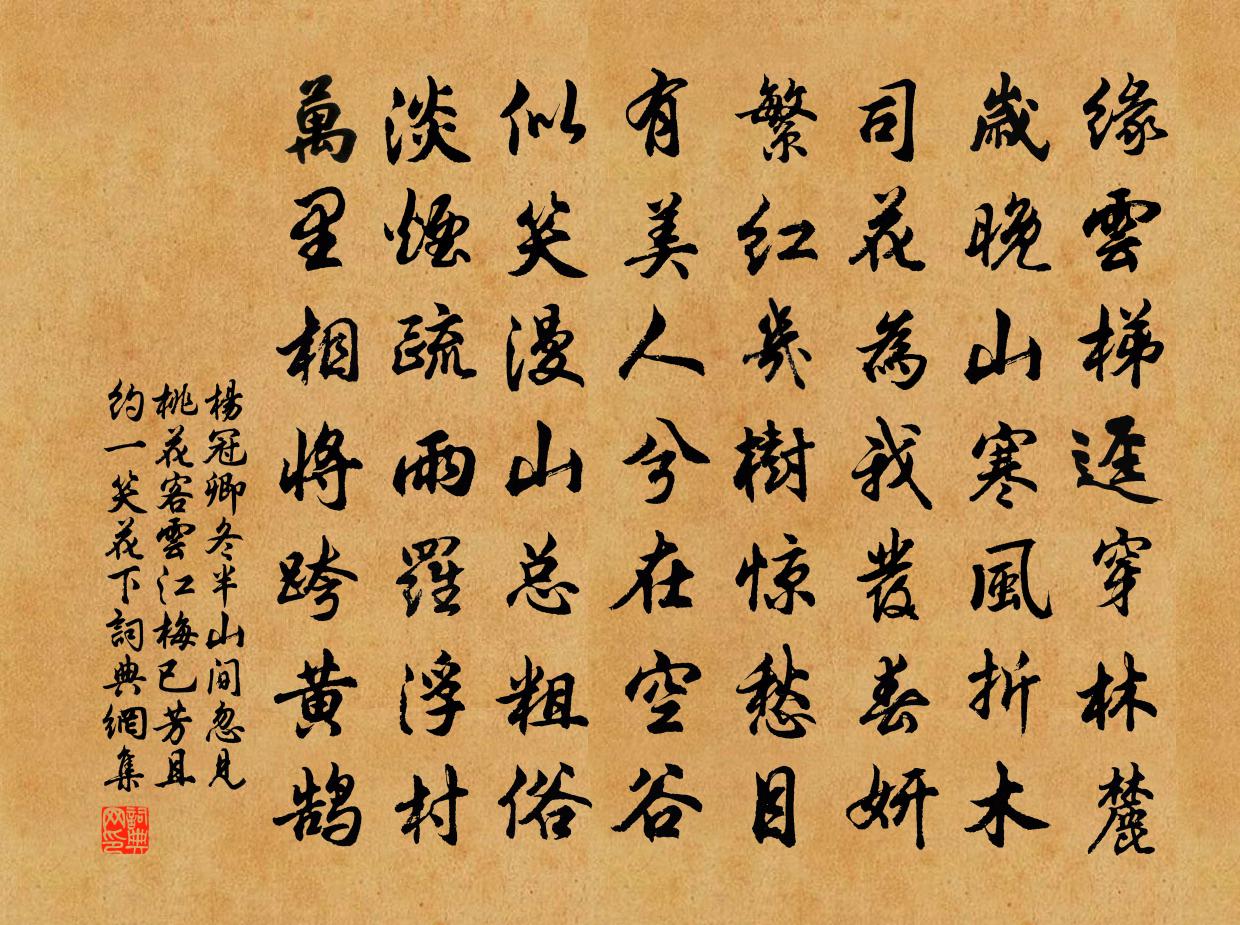 緣雲梯逕穿林麓
歲晚山寒風折木
司花為我發春妍
繁紅幾樹惊愁目
有美人兮在空谷
似笑漫山总粗俗
淡煙疏雨羅浮村
萬里相將跨黃鹄
楊冠卿冬半山间忽見
桃花客雲江梅已芳且
约一笑花下詞典網集
詞典网印